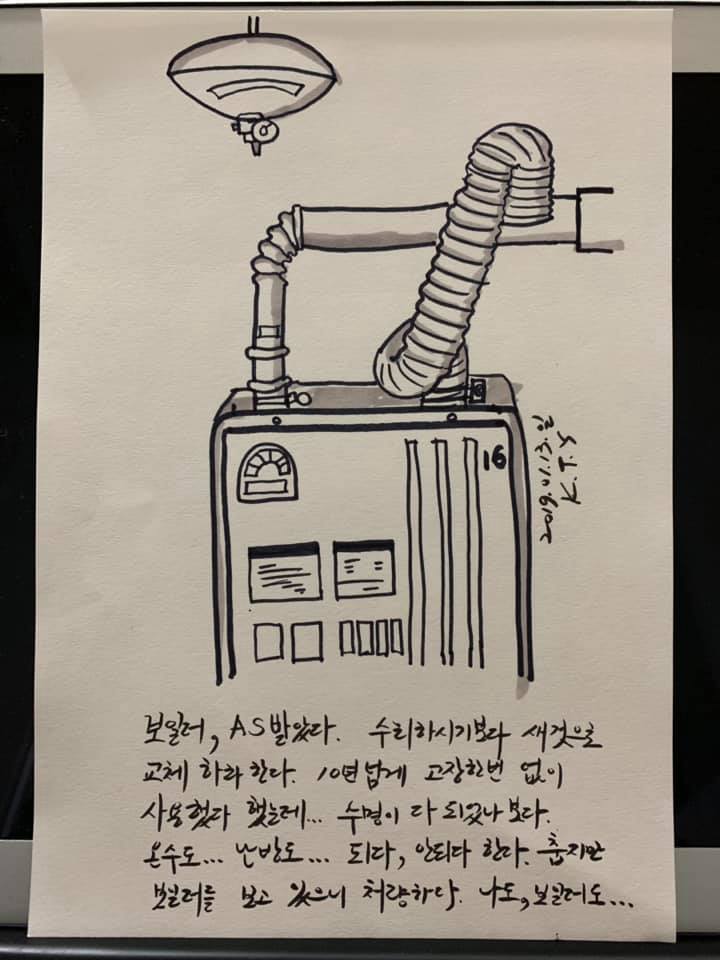 16
2019.01.13.일
K.T.S
보일러, AS받았다. 수리하시기보다 새것으로
교체 하라 한다. 10년넘게 고장한번 없이
사용했다 했는데... 수명이 다 되었나 보다.
온수도... 난방도... 되다, 안되다 한다. 춥지만
보일러를 보고 있으니 처량하다. 나도, 보일러도...